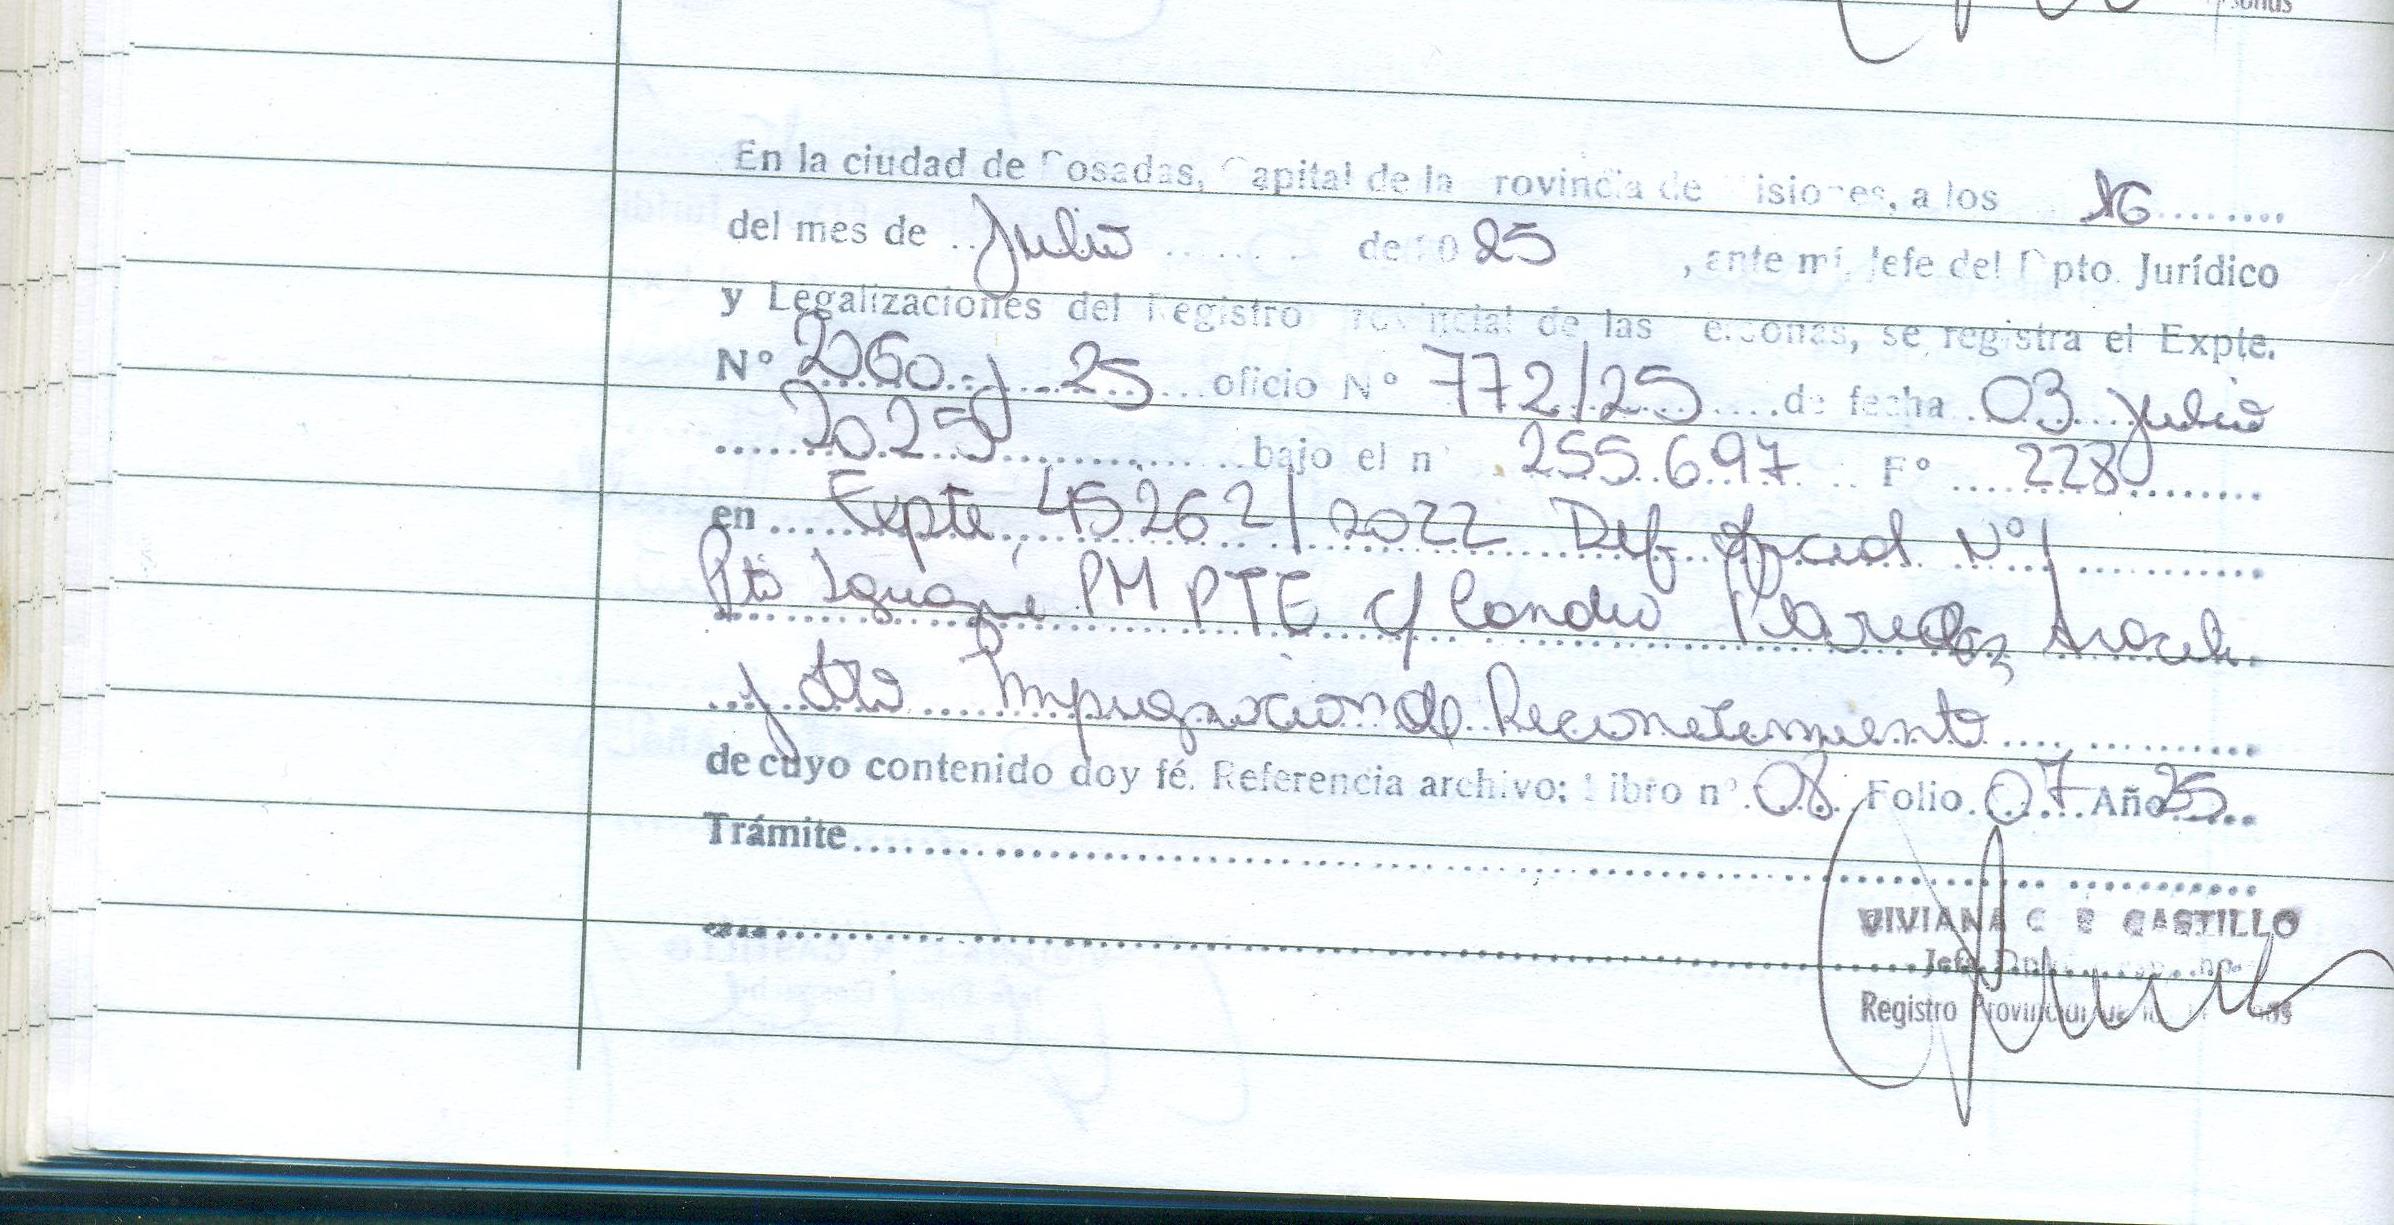 sonas
En la ciudad de Posadas, Capital de la Provincia de Misiones, a los 16
del mes de Julio de 2025, ante mí, Jefe del Dpto. Jurídico
y Legalizaciones del Registro Provincial de las Personas, se registra el Expte.
Nº 2060-J-25 oficio Nº 772/25 de fecha 03 Julio
2025 bajo el nº 255.697 Fº 228
en Expte, 45262/2022 Def. Oficial Nº1
Pto Iguazu PM PTE c/ Paredez Araceli
y Otro Impugnacion de Reconocimiento
de cuyo contenido doy fé. Referencia archivo: Libro nº 08 Folio 07 Año 25
Trámite
VIVIANA C R CASTILLO
Jefe Dpto
Registro Provincial de las Personas